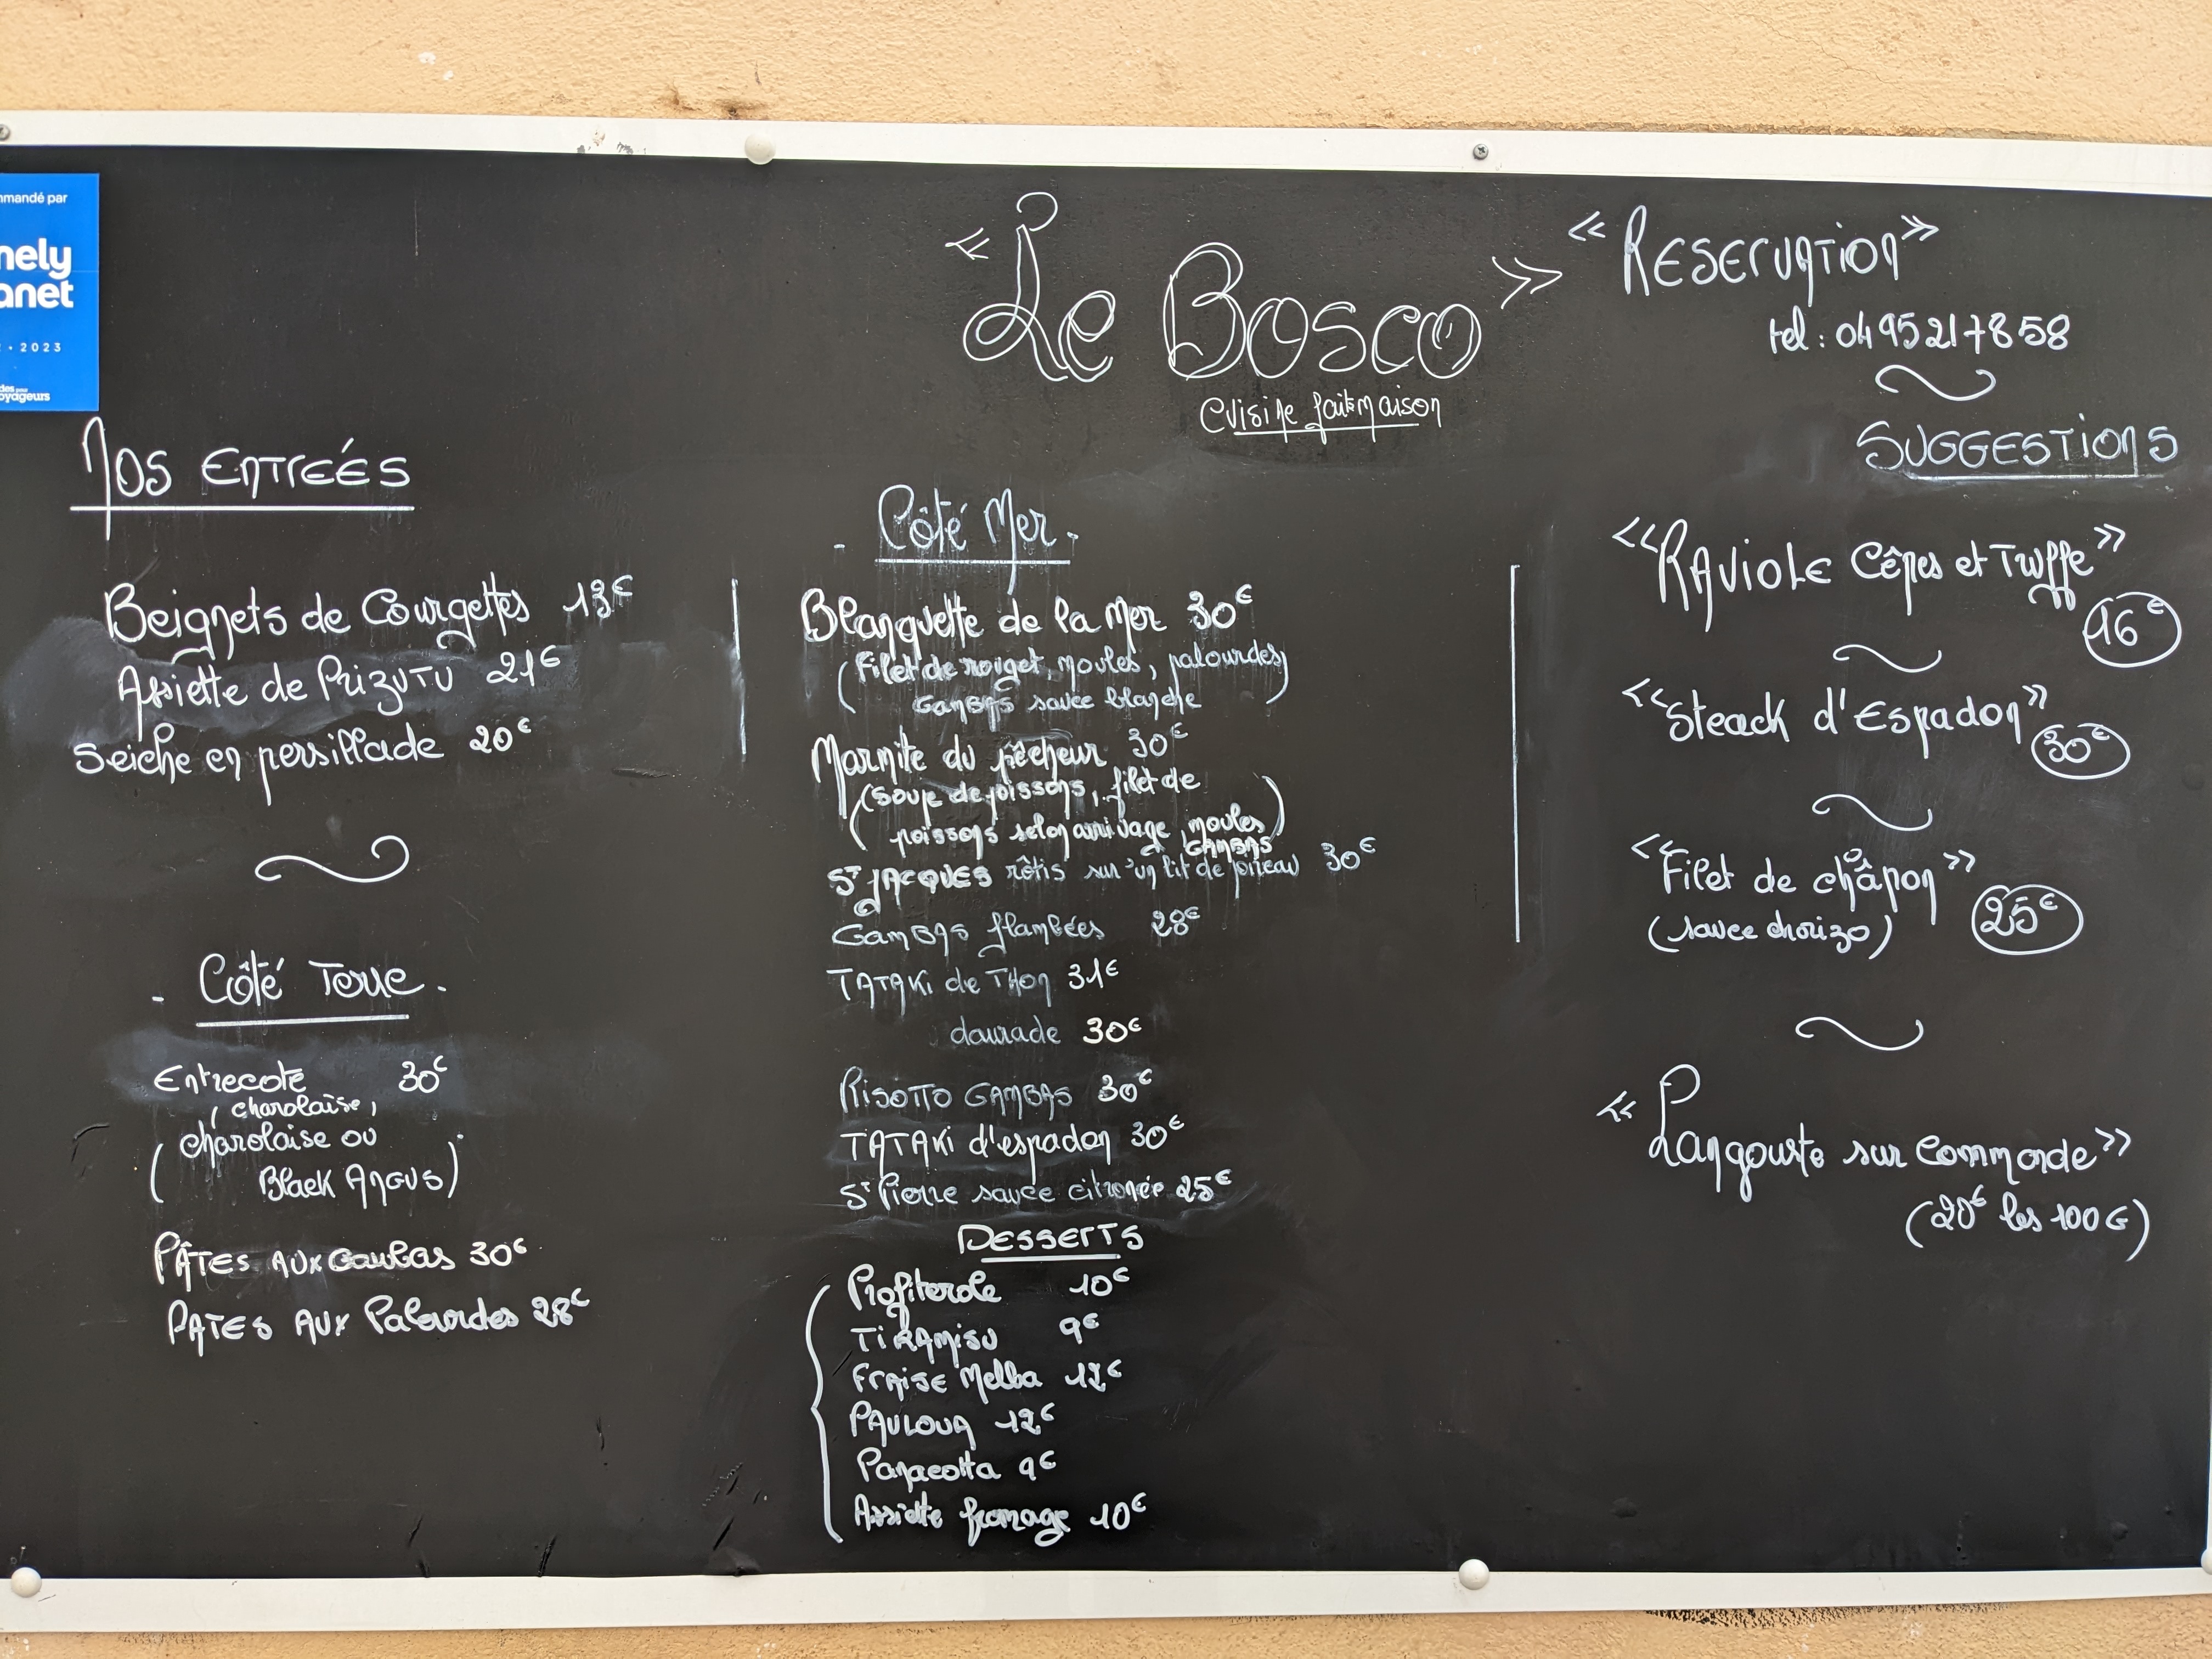 mmandé par
nely
anet
• 2023
des pour
oyageurs
« Le Bosco »
Cuisine fait maison
« RESERVATION »
tel : 04 95 21 78 58
NOS ENTREÉS
Beignets de Courgettes 13€
Assiette de PRIZUTU 21€
Seiche en persillade 20€
- Côté Terre -
Entrecote 30€
( charolaise,
charolaise ou
Black ANGUS)
PÂTES AUX Gambas 30€
PATES AUX Palourdes 28€
- Côté Mer -
Blanquette de la Mer 30€
(Filet de rouget, moules, palourdes)
GAMBAS sauce blanche
Marmite du pêcheur 30€
(soupe de poissons, filet de
poissons selon arrivage, moules)
GAMBAS
ST JACQUES rôtis sur un lit de poireau 30€
GAMBAS flambées 28€
TATAKI de THON 31€
daurade 30€
RISOTTO GAMBAS 30€
TATAKI d'espadon 30€
ST Pierre sauce citronée 25€
DESSERTS
Profiterole 10€
TIRAMISU 9€
FRAISE Melba 12€
PAVLOVA 12€
Panacotta 9€
Assiette fromage 10€
SUGGESTIONS
« RAVIOLE Cêpes et Truffe »
16€
« Steack d'Espadon »
30€
« Filet de châpon »
(sauce chorizo)
25€
« Langouste sur commande »
(20€ les 100G)